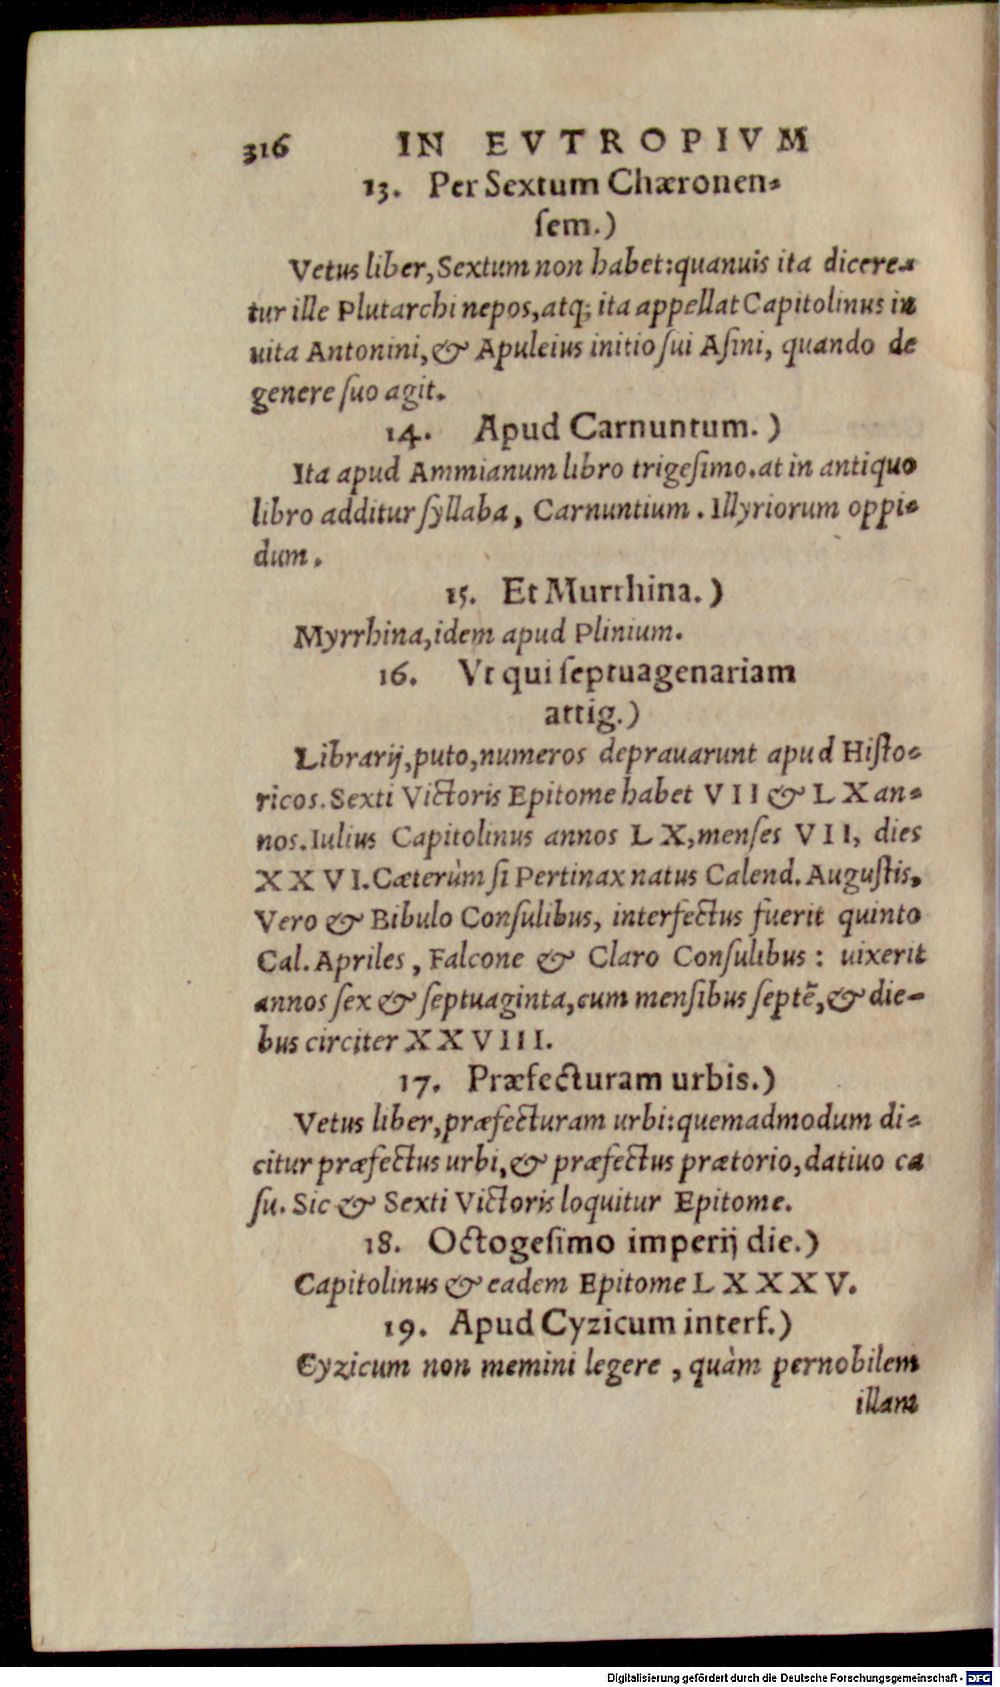 316 IN EVTROPIVM
13. Per Sextum Chæronen-
ſem.)
Vetus liber, Sextum non habet: quanuis ita dicere-
tur ille Plutarchi nepos, atq; ita appellat Capitolinus in
uita Antonini, & Apuleius initio ſui Aſini, quando de
genere ſuo agit.
14. Apud Carnuntum.)
Ita apud Ammianum libro trigeſimo. at in antiquo
libro additur ſyllaba, Carnuntium. Illyriorum oppi-
dum.
15. Et Murrhina.)
Myrrhina, idem apud Plinium.
16. Vt qui ſeptuagenariam
attig.)
Librarij, puto, numeros deprauarunt apud Hiſto-
ricos. Sexti Victoris Epitome habet VII & LX an-
nos. Iulius Capitolinus annos LX, menſes VII, dies
XXVI. Cæterùm ſi Pertinax natus Calend. Auguſtis,
Vero & Bibulo Conſulibus, interfectus fuerit quinto
Cal. Apriles, Falcone & Claro Conſulibus: uixerit
annos ſex & ſeptuaginta, cum menſibus ſeptē, & die-
bus circiter XXVIII.
17. Præfecturam urbis.)
Vetus liber, præfecturam urbi: quemadmodum di-
citur præfectus urbi, & præfectus prætorio, datiuo ca
ſu. Sic & Sexti Victoris loquitur Epitome.
18. Octogeſimo imperij die.)
Capitolinus & eadem Epitome LXXXV.
19. Apud Cyzicum interf.)
Cyzicum non memini legere, quàm pernobilem
illam
Digitalisierung gefördert durch die Deutsche Forschungsgemeinschaft - DFG